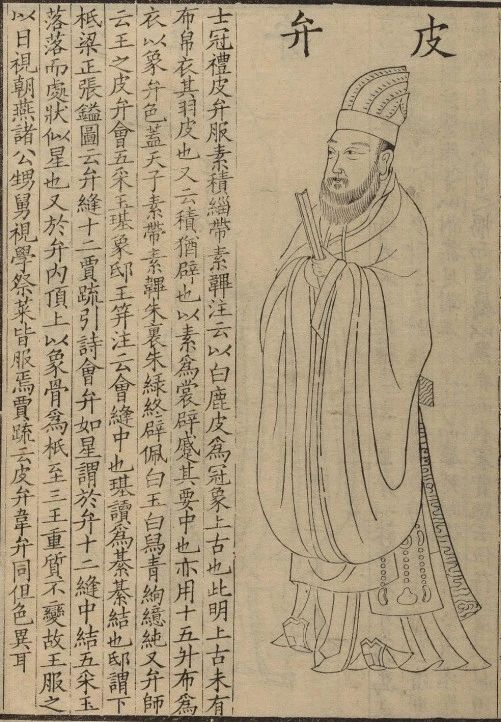 皮弁
士冠禮皮弁服素積緇帶素韠注云以白鹿皮爲冠象上古也此明上古未有
布帛衣其羽皮也又云積猶辟也以素爲裳辟蹙其要中也亦用十五升布爲
衣以象弁色蓋天子素帶素韠朱裏朱綠終辟佩白玉白舄青絇繶純又弁師
云王之皮弁會五采玉璂象邸玉笄注云會縫中也璂讀爲綦綦結也邸謂下
柢梁正張鎰圖云弁縫十二賈疏引詩會弁如星謂於弁十二縫中結五采玉
落落而處狀似星也又於弁內頂上以象骨爲柢至三王重質不變故王服之
以日視朝燕諸公甥舅視學祭菜皆服焉賈疏云皮弁韋弁同但色異耳